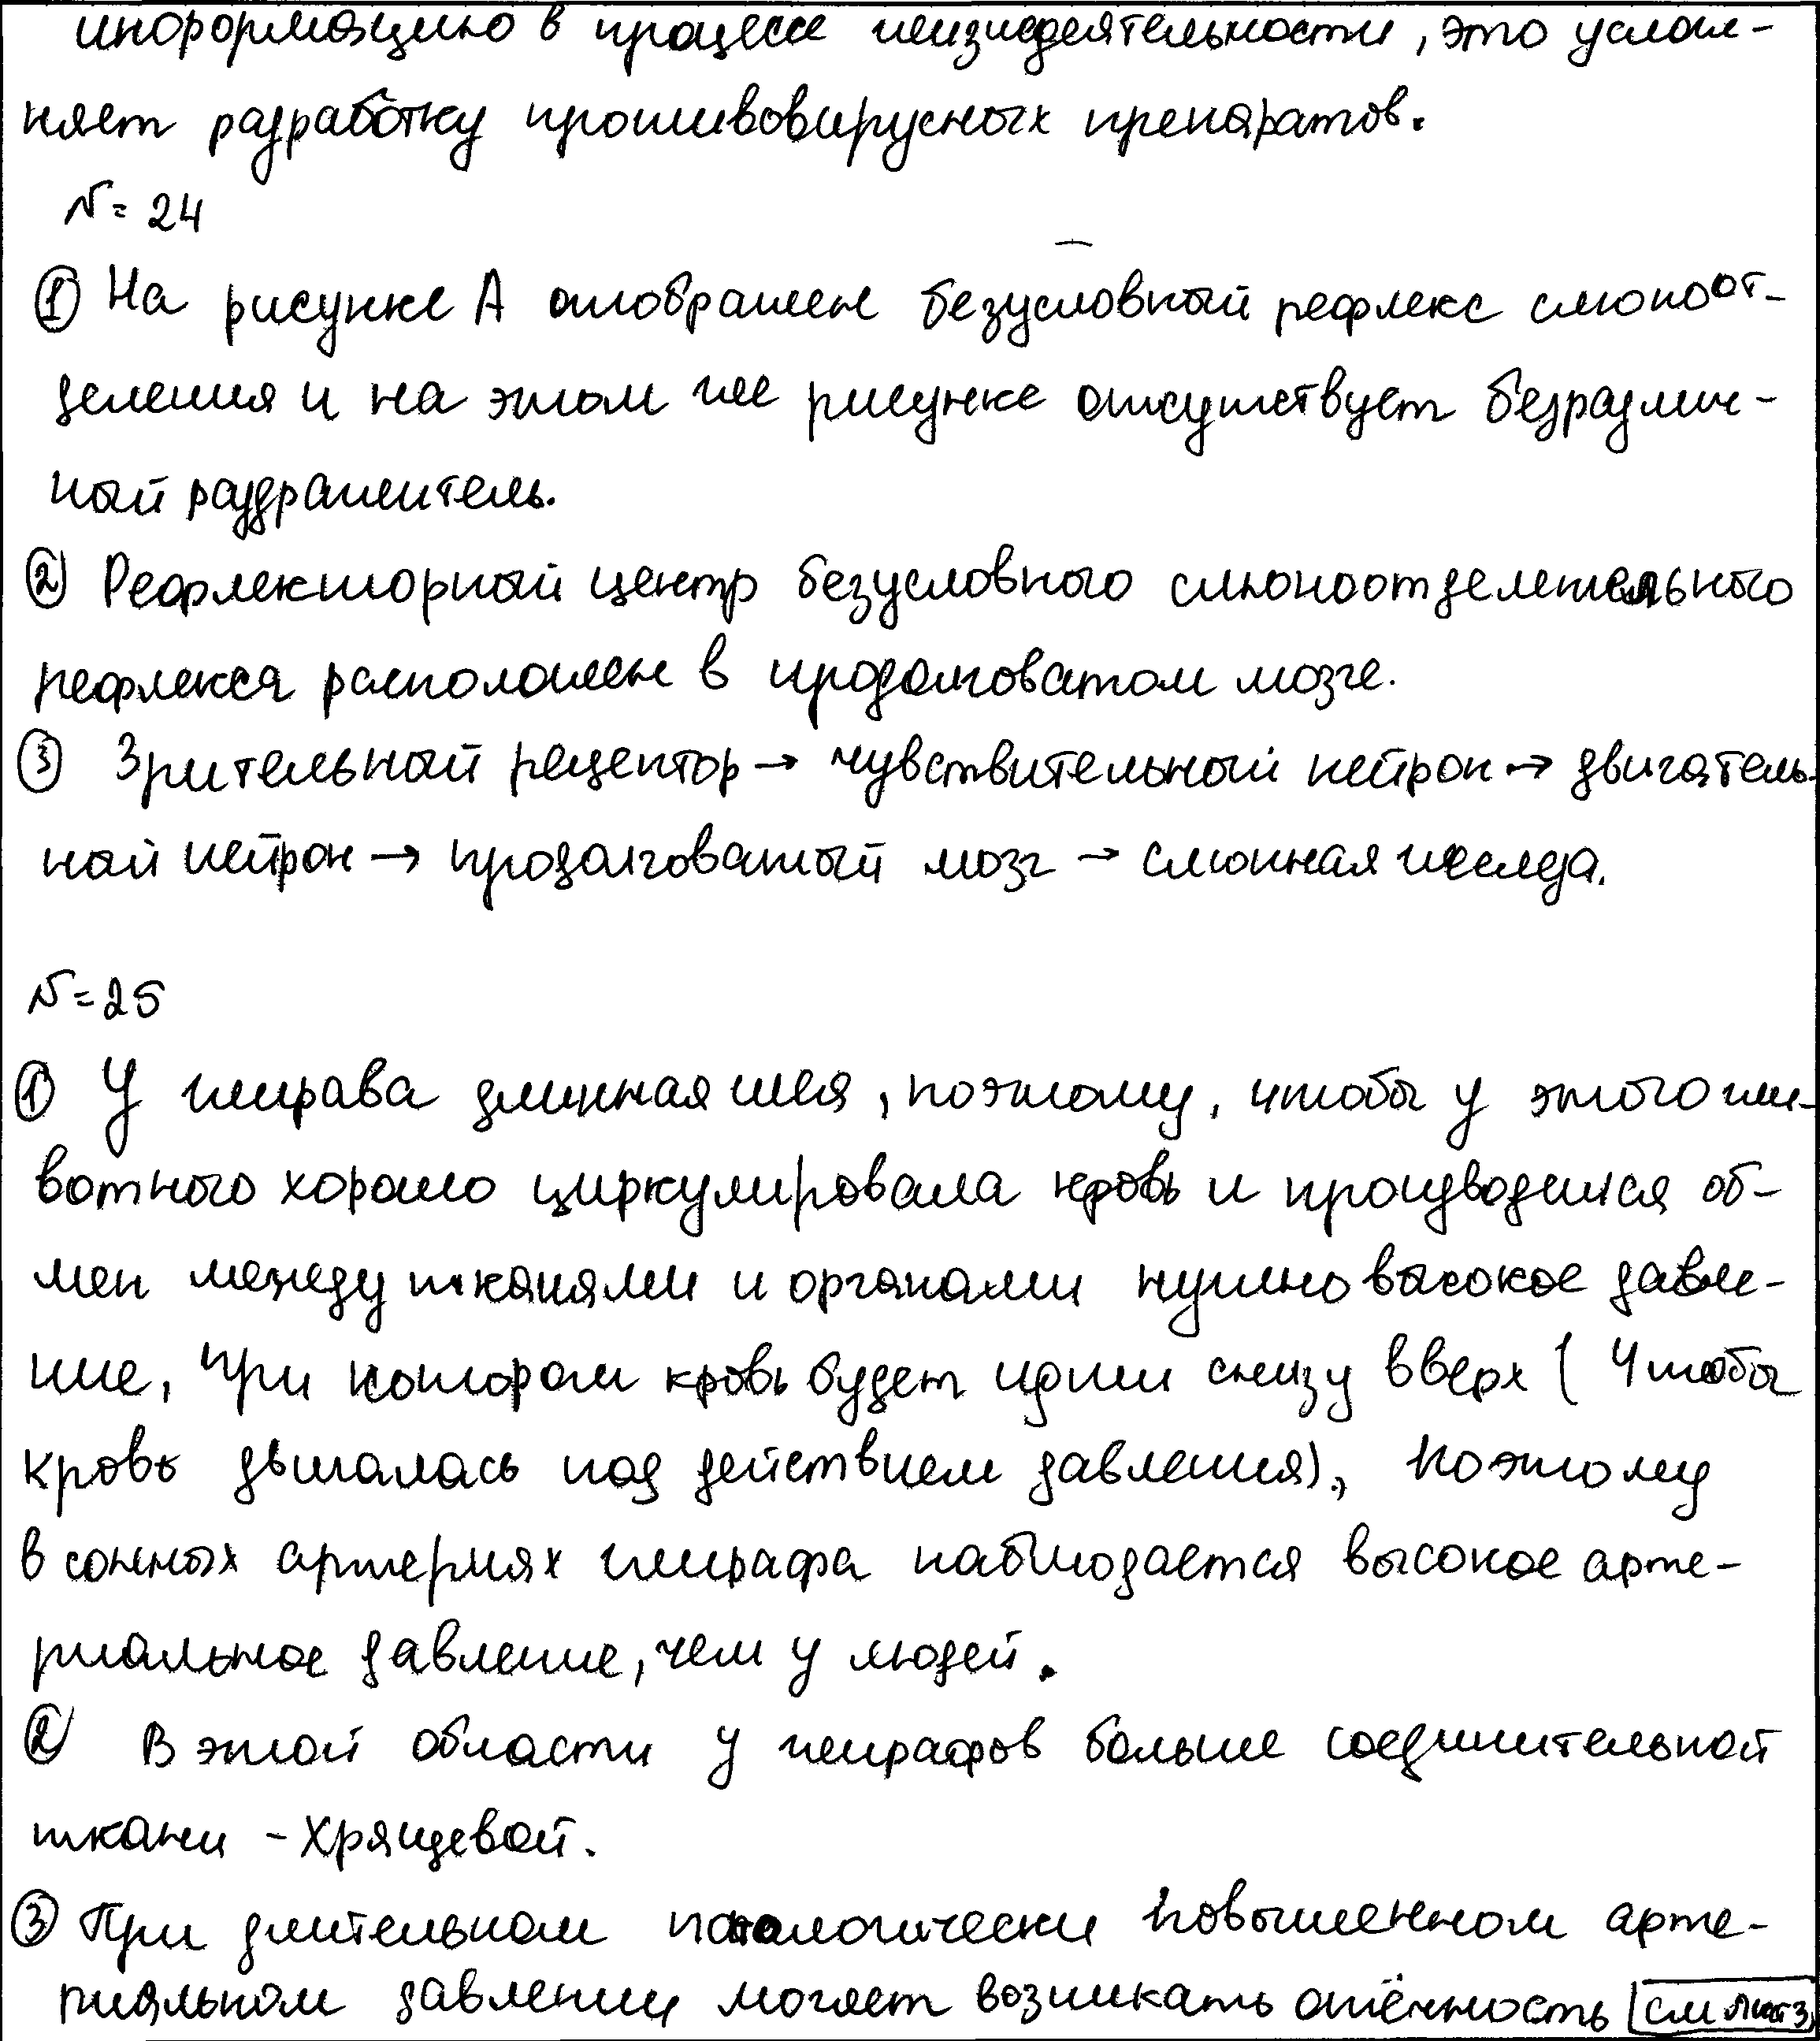 информацию в процессе жизнедеятельности, это услож-
няет разработку противовирусных препаратов.
N= 24
① На рисунке А отображен безусловный рефлекс слюноот-
деления и на этом же рисунке отсутствует безразлич-
ный раздражитель.
② Рефлекторный центр безусловного слюноотделительного
рефлекса расположен в продолговатом мозге.
③ Зрительный рецептор → чувствительный нейрон → двигатель-
ный нейрон → продолговатый мозг → слюнная железа.
N=25
① У жирава длинная шея, поэтому, чтобы у этого жи-
вотного хорошо циркулировала кровь и производился об-
мен между тканями и органами нужно высокое давле-
ние, при котором кровь будет идти снизу вверх (чтобы
кровь двигалась под действием давления), поэтому
в сонных артериях жирафа наблюдается высокое арте-
риальное давление, чем у людей.
② В этой области у жирафов больше соединительной
ткани - хрящевой.
③ При длительном патологически повышенном арте-
риальном давлении может возникать отёчность см лист 3